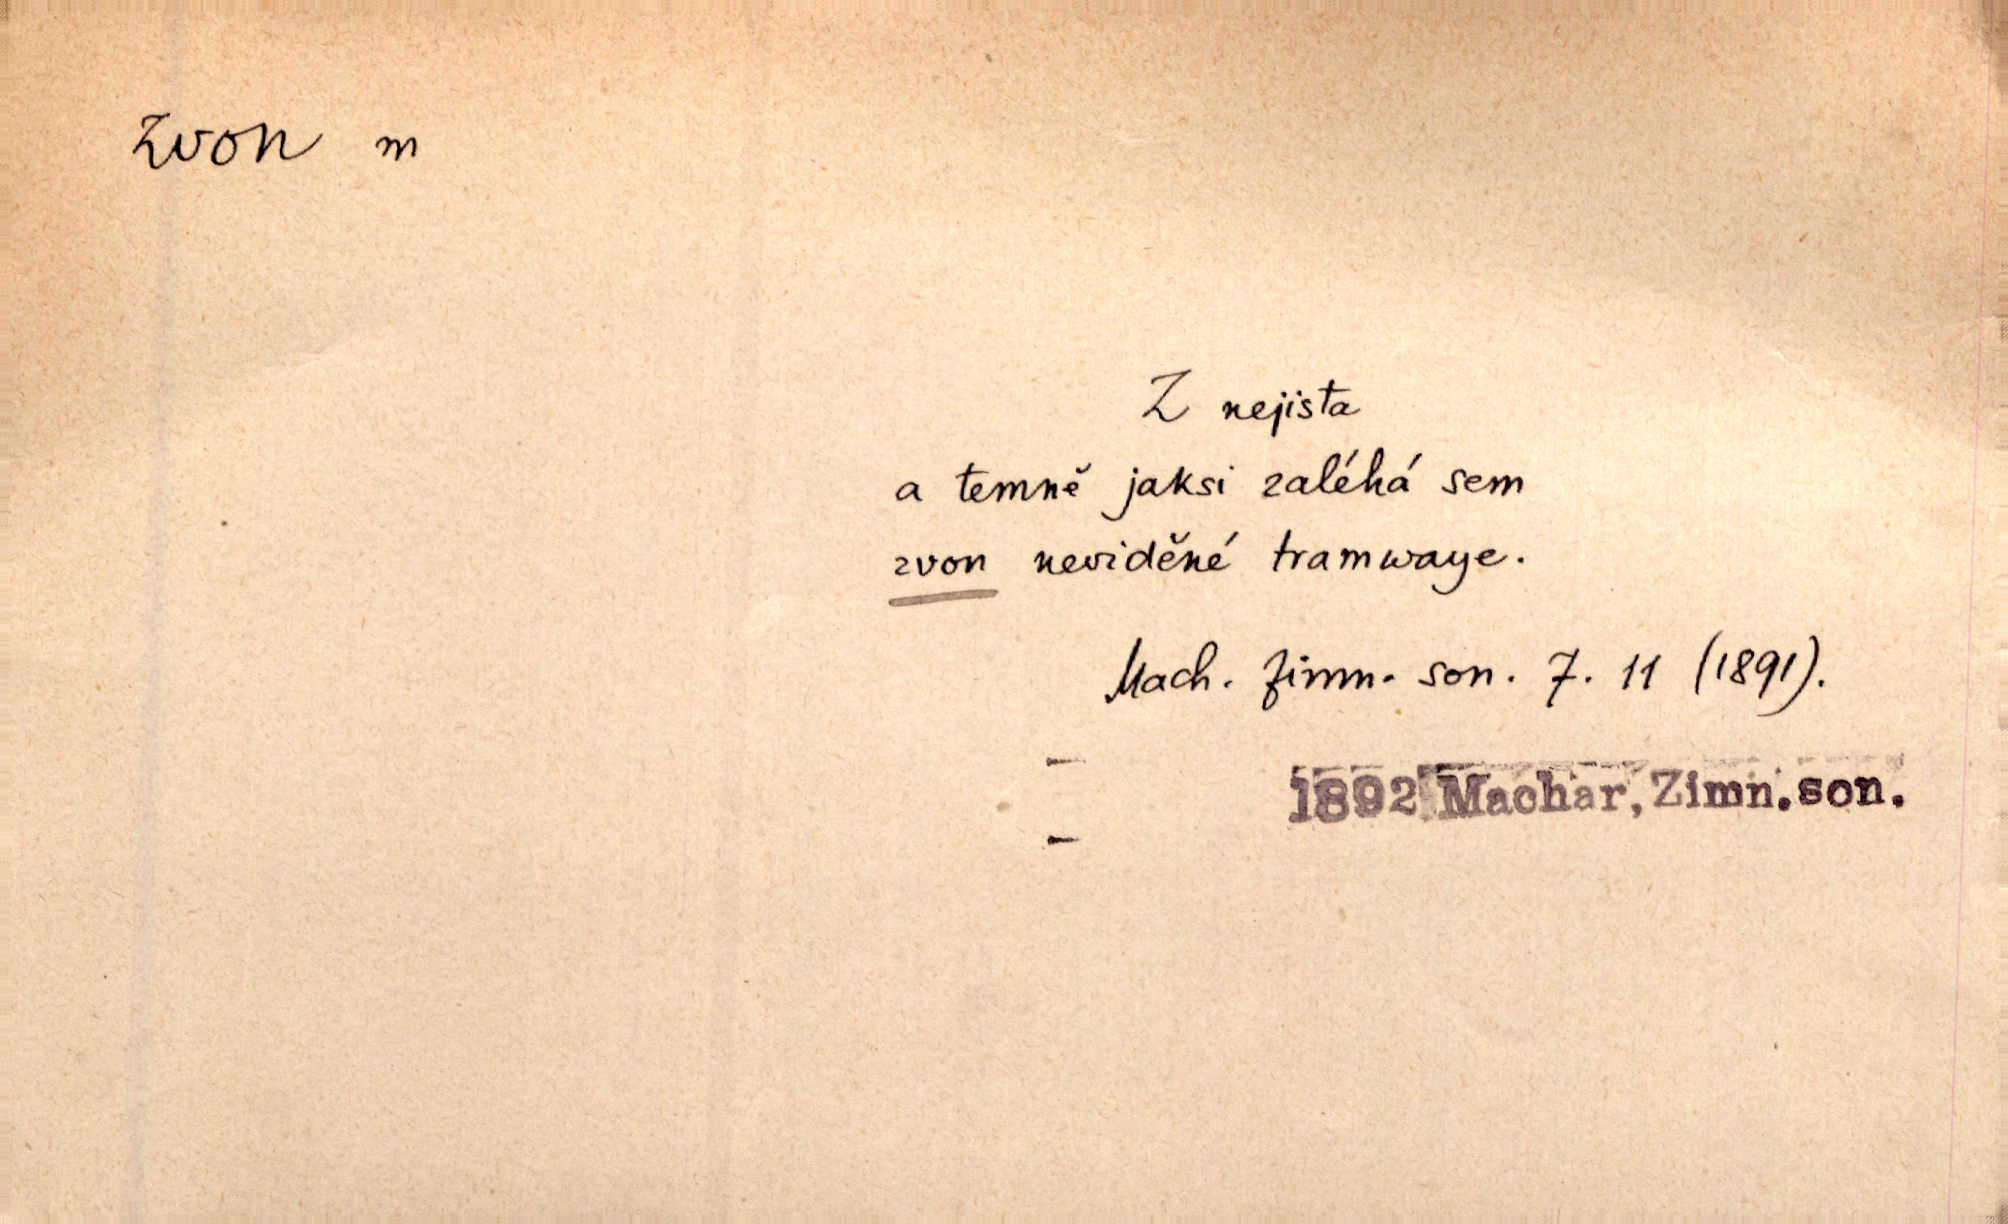 zvon m
Z nejista
a temně jaksi zaléhá sem
zvon neviděné tramwaye.
Mach. Zimn. son. 7. 11 (1891).
1892 Machar, Zimn. son.